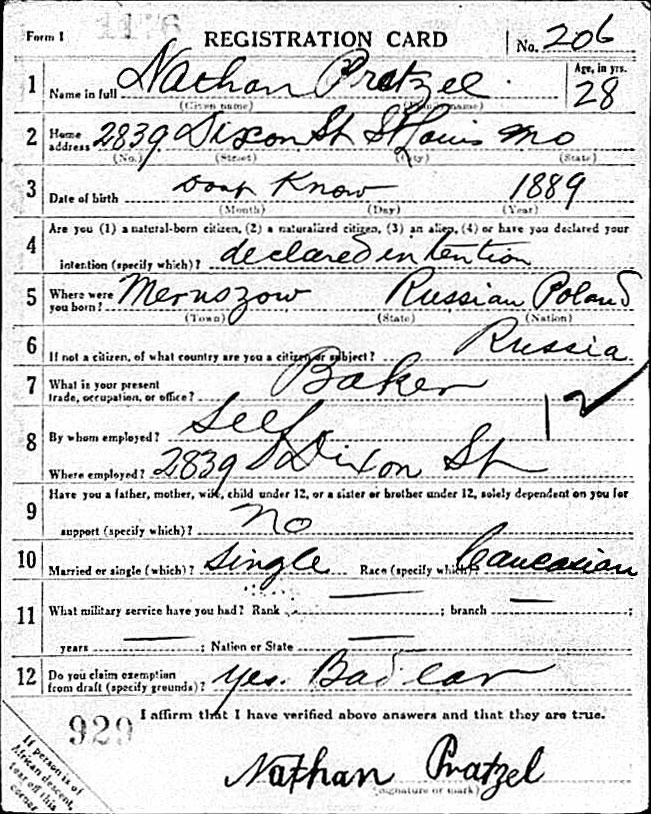 1176
Form 1 REGISTRATION CARD No. 206
1 Name in full Nathan Pratzel Age, in yrs. 28
(Given name) (Family name)
2 Home address 2839 Dixon St St Louis Mo
(No.) (Street) (City) (State)
3 Date of birth Dont Know 1889
(Month) (Day) (Year)
4 Are you (1) a natural-born citizen, (2) a naturalized citizen, (3) an alien, (4) or have you declared your
intention (specify which)? declared intention
5 Where were you born? Russian Poland
(Town) (State) (Nation)
6 If not a citizen, of what country are you a citizen or subject? Russia
7 What is your present trade, occupation, or office? Baker
12
8 By whom employed? Self
Where employed? 2839 Dixon St
9 Have you a father, mother, wife, child under 12, or a sister or brother under 12, solely dependent on you for
support (specify which)? No
10 Married or single (which)? Single Race (specify which)? Caucasian
11 What military service have you had? Rank ; branch ;
years ; Nation or State
12 Do you claim exemption from draft (specify grounds)? Yes. Bad ear
I affirm that I have verified above answers and that they are true.
929
If person is of
African descent,
tear off this
corner.
Nathan Pratzel
(signature or mark)